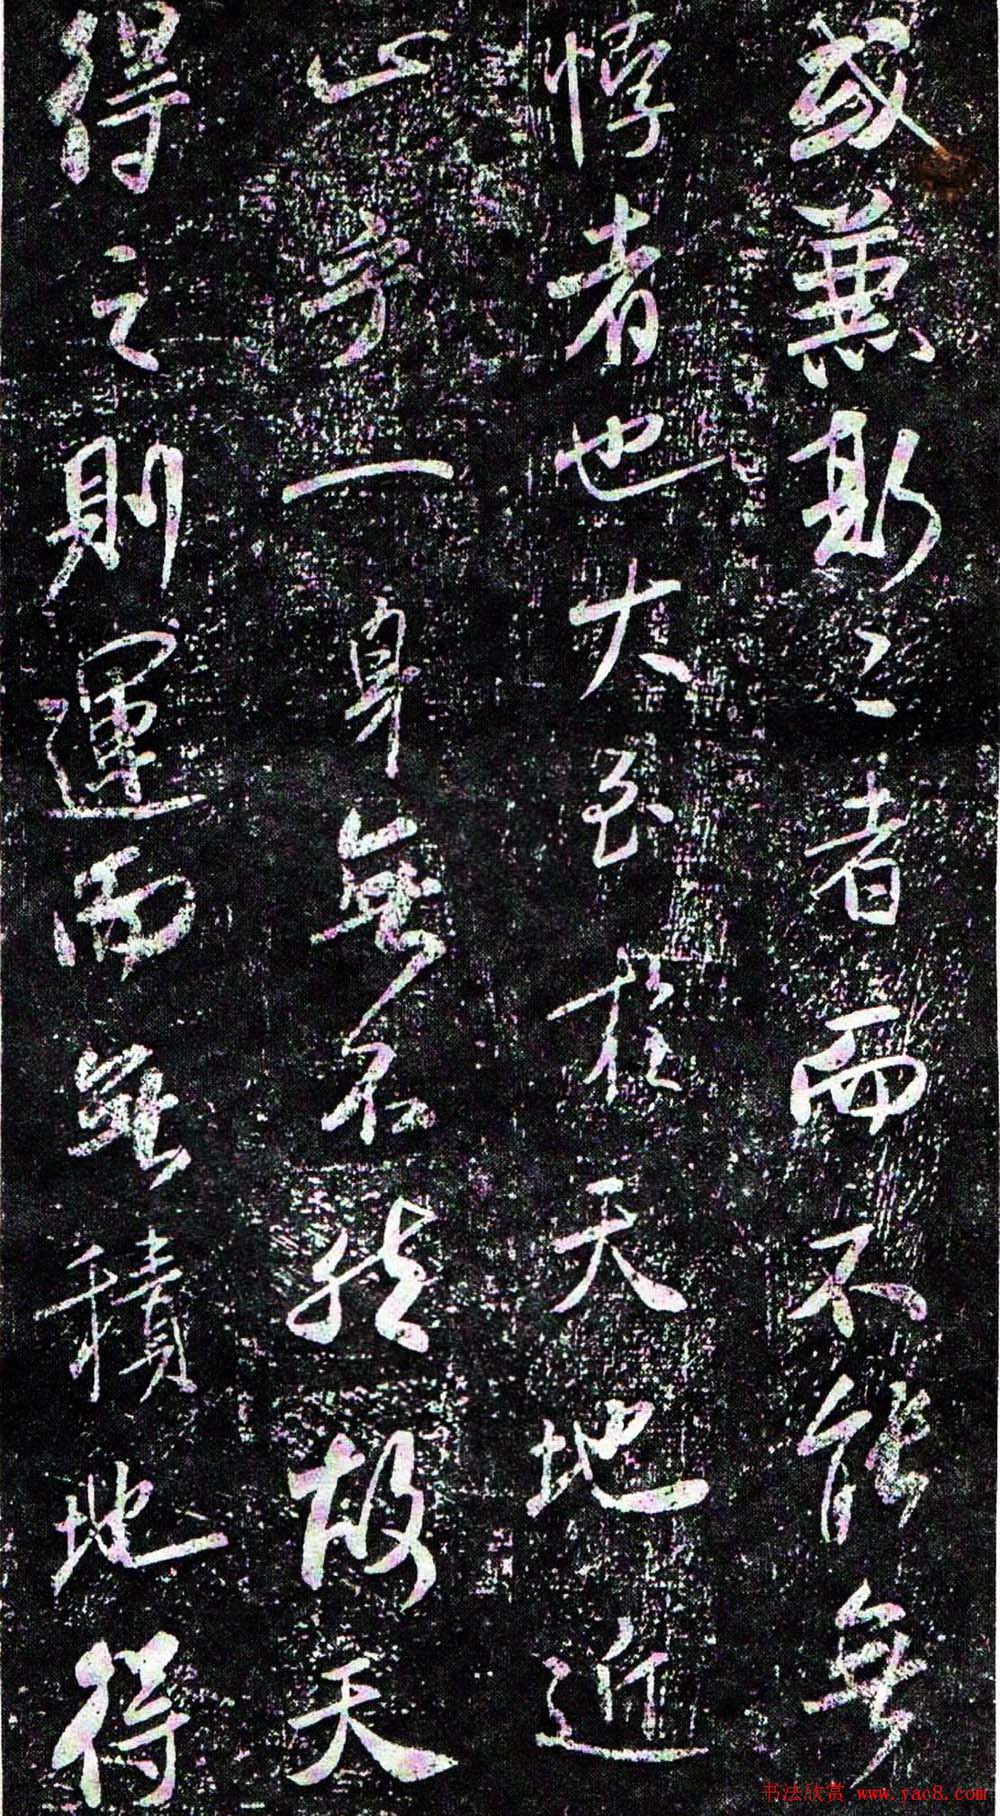 或兼斯二者而不能無
悖者也大至於天地近
止乎一身無不然故天
得之則運而無積地得
书法欣赏 www.yac8.com